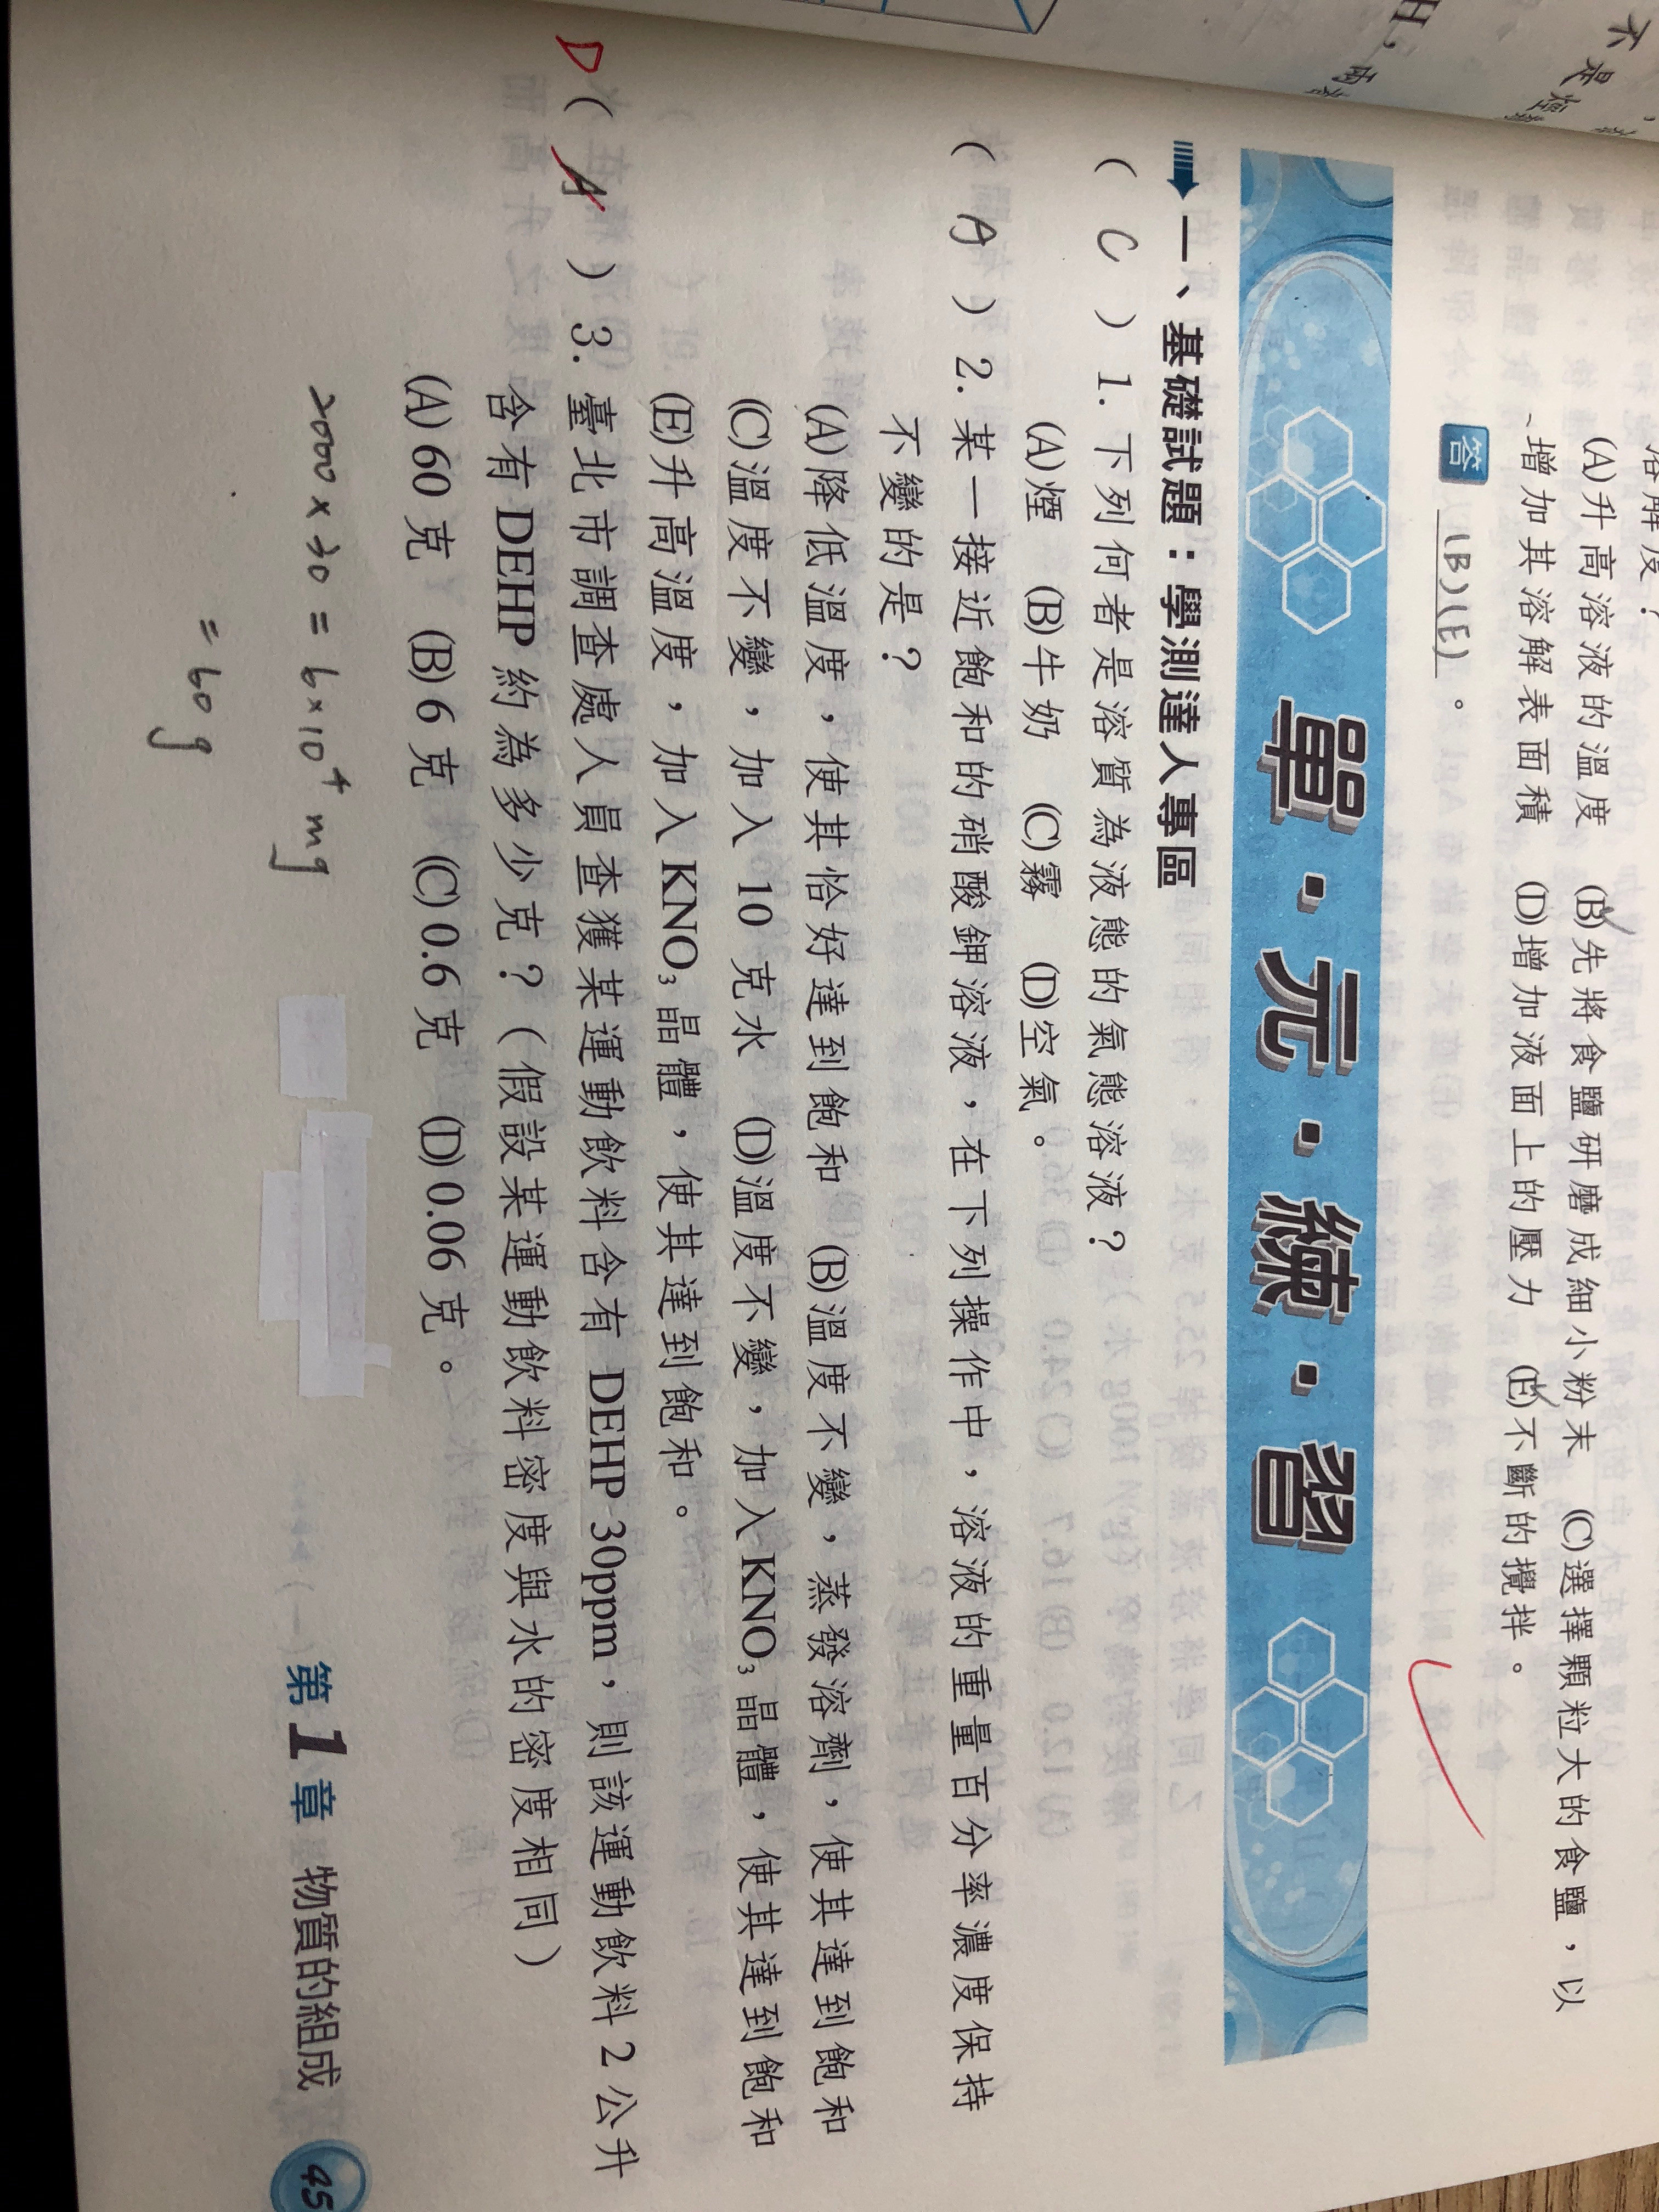 不是
H,
溶解度?
(A)升高溶液的溫度 (B)先將食鹽研磨成細小粉末 (C)選擇顆粒大的食鹽,以
增加其溶解表面積 (D)增加液面上的壓力 (E)不斷的攪拌。
答 (B)(E)。
單・元・練・習
一、基礎試題:學測達人專區
( C ) 1. 下列何者是溶質為液態的氣態溶液?
(A)煙 (B)牛奶 (C)霧 (D)空氣。
( A ) 2. 某一接近飽和的硝酸鉀溶液,在下列操作中,溶液的重量百分率濃度保持
不變的是?
(A)降低溫度,使其恰好達到飽和 (B)溫度不變,蒸發溶劑,使其達到飽和
(C)溫度不變,加入 10 克水 (D)溫度不變,加入 KNO₃ 晶體,使其達到飽和
(E)升高溫度,加入 KNO₃ 晶體,使其達到飽和。
D ( A ) 3. 臺北市調查處人員查獲某運動飲料含有 DEHP 30ppm,則該運動飲料 2 公升
含有 DEHP 約為多少克?(假設某運動飲料密度與水的密度相同)
(A) 60 克 (B) 6 克 (C) 0.6 克 (D) 0.06 克。
2000 × 30 = 6×10⁴ mg
= 60 g
第 1 章 物質的組成 45